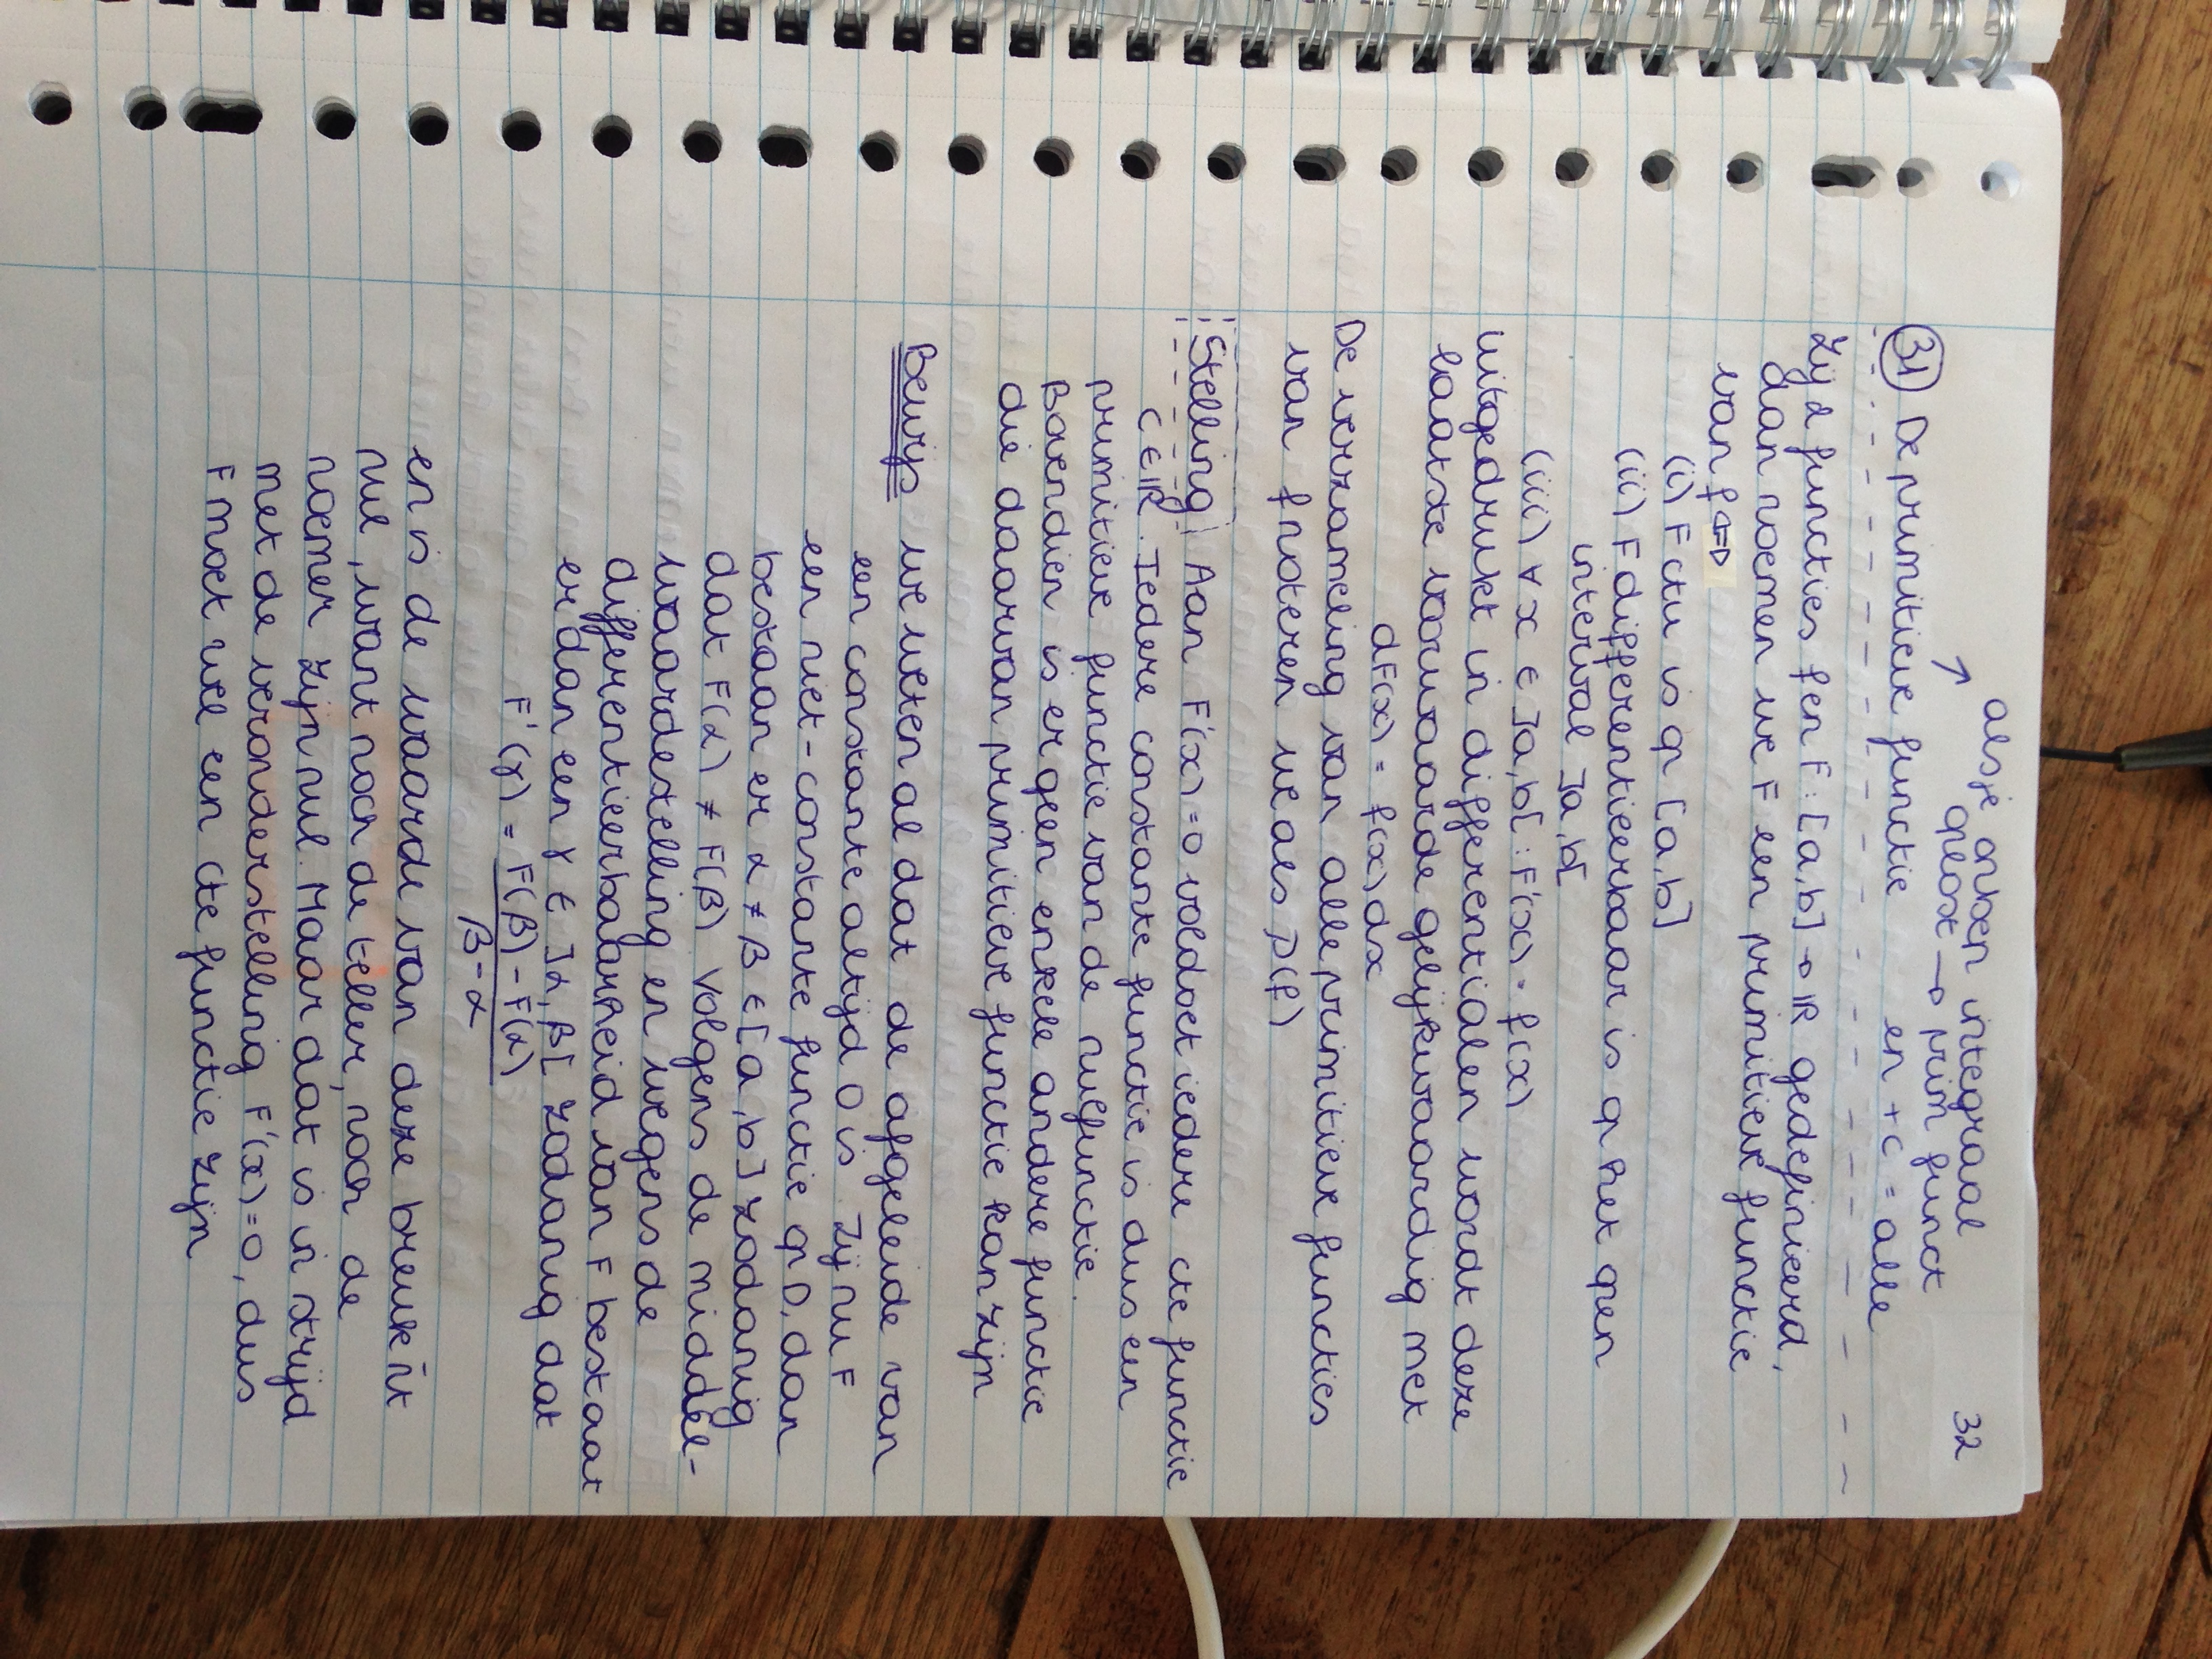 als je onben integraal
oplost → prim funct
32
↗
31 De primitieve functie
en + c = alle
Zij 2 functies f en F : [a,b] → ℝ gedefinieerd,
dan noemen we F een primitieve functie
van f ⇔
(i) F ctu is op [a,b]
(ii) F differentieerbaar is op het open
interval ]a,b[
(iii) ∀ x ∈ ]a,b[ : F'(x) = f(x)
uitgedrukt in differentialen wordt deze
laatste voorwaarde gelijkwaardig met
dF(x) = f(x)dx
De verzameling van alle primitieve functies
van f noteren we als P(f)
Stelling Aan F'(x) = 0 voldoet iedere cte functie
C ∈ ℝ. Iedere constante functie is dus een
primitieve functie van de nulfunctie.
Bovendien is er geen enkele andere functie
die daarvan primitieve functie kan zijn
Bewijs we weten al dat de afgeleide van
een constante altijd 0 is. Zij nu F
een niet-constante functie op D, dan
bestaan er α ≠ β ∈ [a,b] zodanig
dat F(α) ≠ F(β). Volgens de middel-
waardestelling en wegens de
differentieerbaarheid van F bestaat
er dan een γ ∈ ]α, β[ zodanig dat
F'(γ) = F(β) - F(α)
β - α
en is de waarde van deze breuk n̄t
nul, want noch de teller, noch de
noemer zijn nul. Maar dat is in strijd
met de veronderstelling F'(x)=0, dus
F moet wel een cte functie zijn